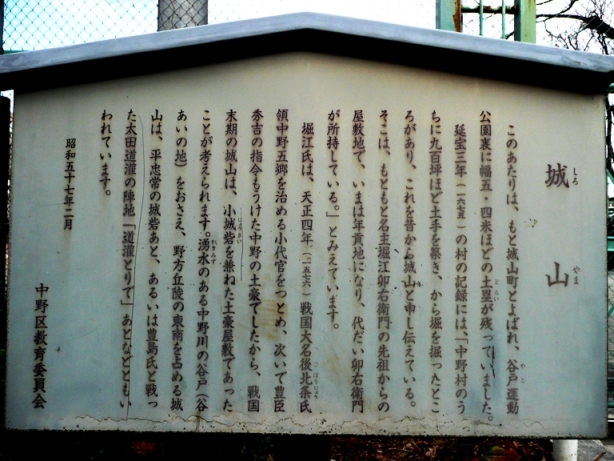 城山
しろやま
このあたりは、もと城山町とよばれ、谷戸運動
やと
公園裏に幅五・四米ほどの土塁が残っていました。
どるい
延宝三年(一六七五)の村の記録には、「中野村のう
ちに九百坪ほど土手を築き、から堀を掘ったとこ
ろがあり、これを昔から城山と申し伝えている。
そこは、もともと名主堀江卯右衛門の先祖からの
屋敷地で、いまは年貢地になり、代だい卯右衛門
が所持している。」とみえています。
堀江氏は、天正四年(一五七六)戦国大名後北条氏
ごほうじょう
領中野五郷を治める小代官をつとめ、次いで豊臣
秀吉の指令もうけた中野の土豪でしたから、戦国
末期の城山は、小城砦を兼ねた土豪屋敷であった
じょうさい
ことが考えられます。湧水のある中野川の谷戸(谷
あいの地)をおさえ、野方丘陵の東南を占める城
山は、平忠常の城砦あと、あるいは豊島氏と戦っ
た太田道灌の陣地「道灌とりで」あとなどともい
われています。
昭和五十七年二月
中野区教育委員会